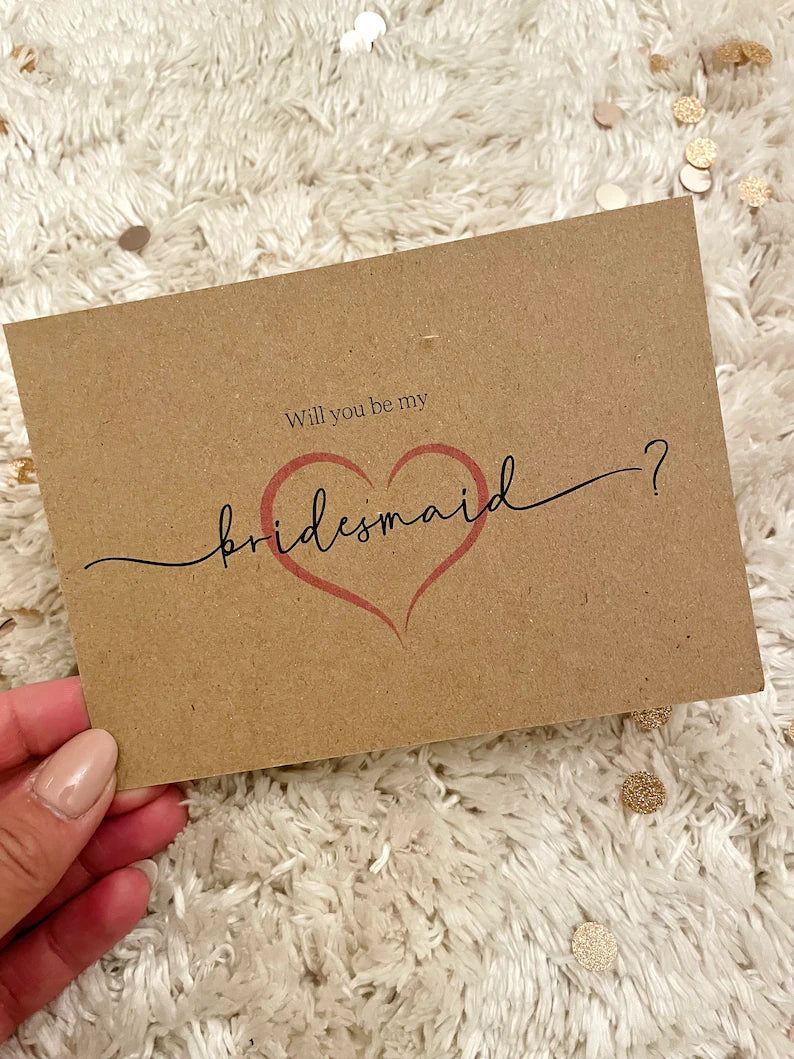 Will you be my
bridesmaid?